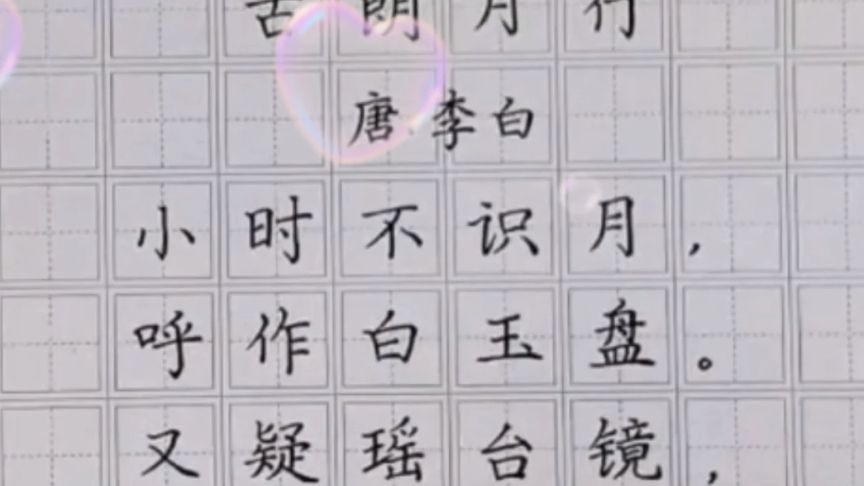 古朗月行
唐 李白
小时不识月,
呼作白玉盘。
又疑瑶台镜,